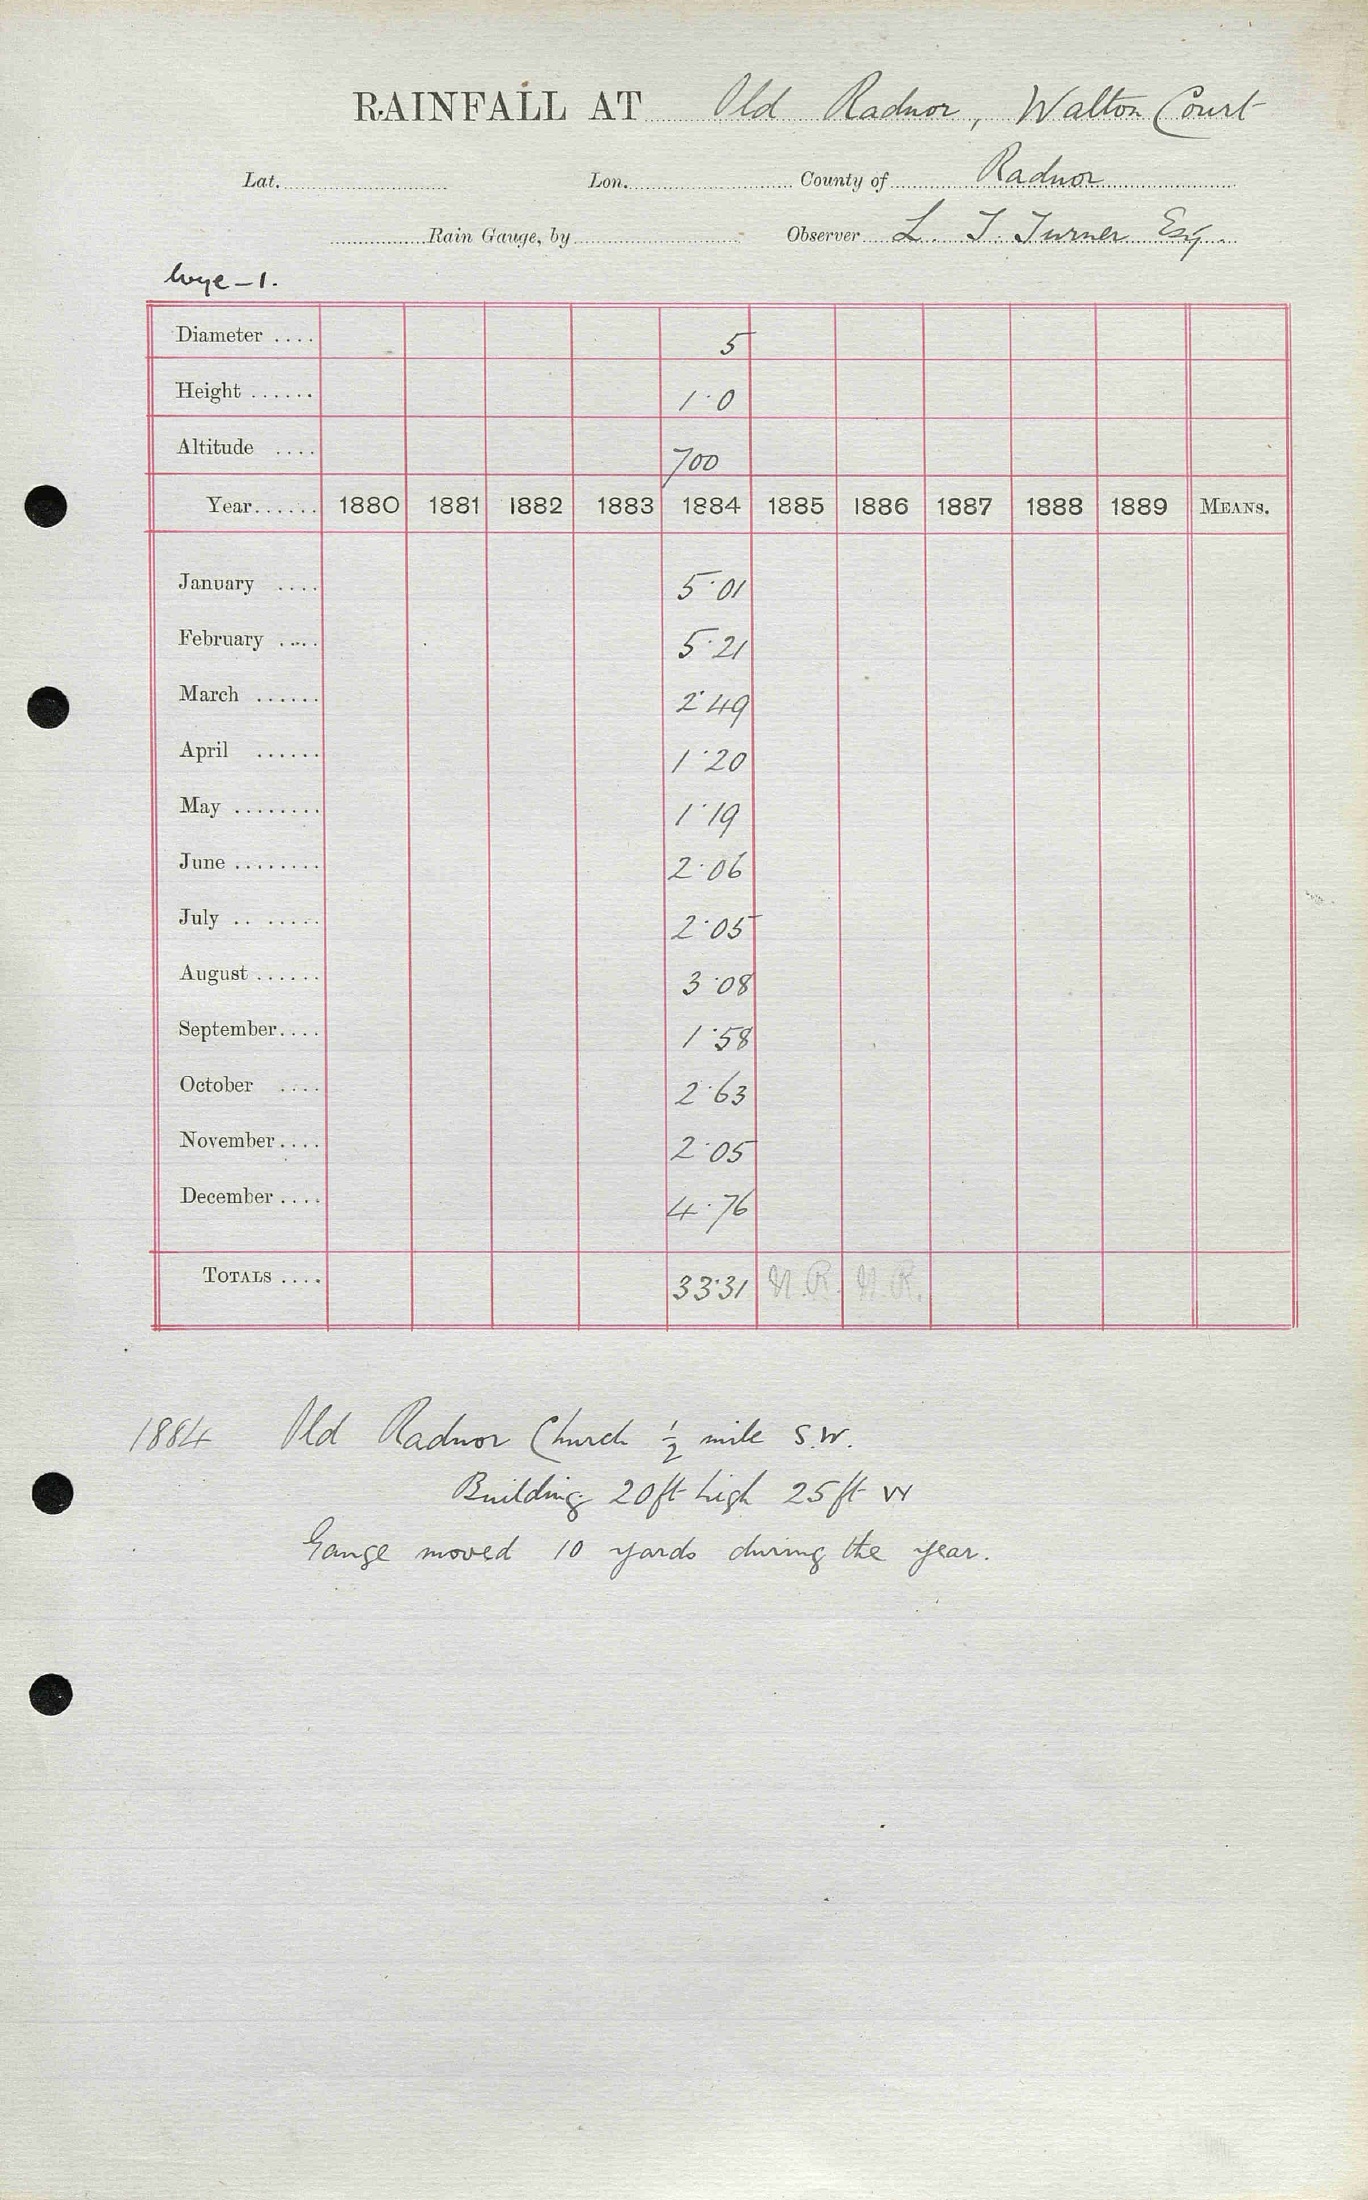 RAINFALL AT Old Radnor, Walton Court
Lat. Lon. County of Radnor
Rain Gauge, by Observer L. T. Turner Esq.
Wye – 1.
Diameter .... 5
Height ...... 1·0
Altitude .... 700
Year...... 1880 1881 1882 1883 1884 1885 1886 1887 1888 1889 MEANS.
January .... 5·01
February .... 5·21
March ...... 2·49
April ...... 1·20
May ........ 1·19
June ........ 2·06
July .. ..... 2·05
August ...... 3·08
September.... 1·58
October .... 2·63
November.... 2·05
December .... 4·76
TOTALS .... 33·31 N.R. N.R.
1884 Old Radnor Church ½ mile S.W.
Building 20ft high 25ft W
Gauge moved 10 yards during the year.